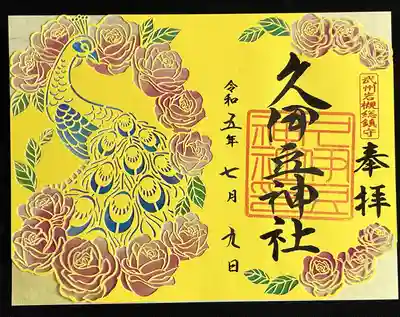 武州岩槻総鎮守
奉拝
久伊豆神社
令和五年 七月 九日